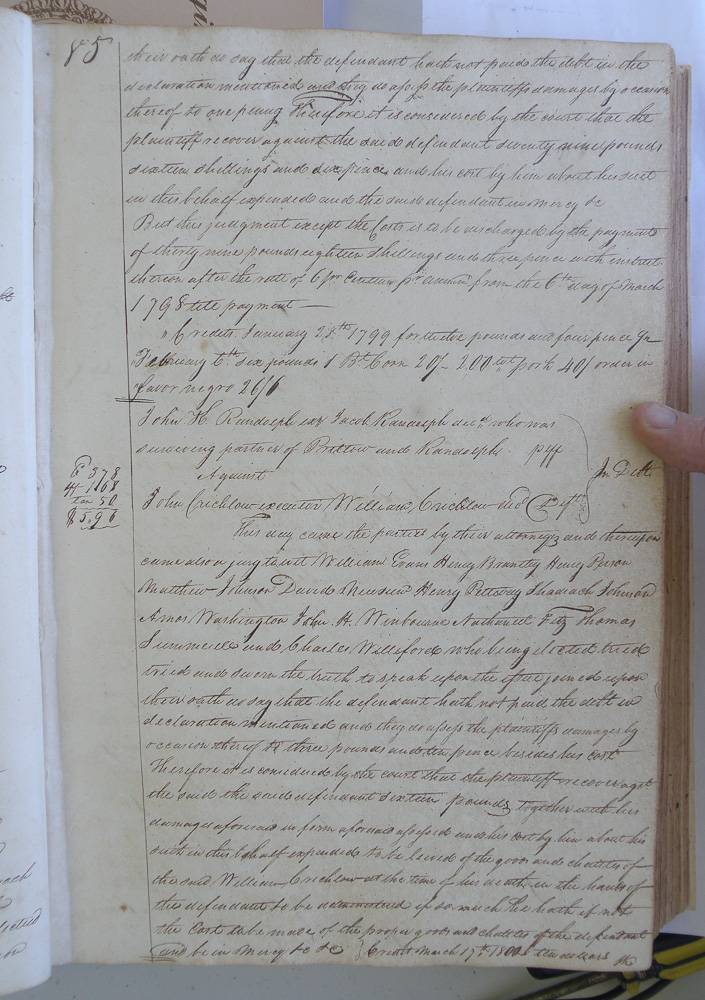 85
their oath do say that the defendant hath not paid the debt in the
declaration mentioned and they do assess the plaintiffs damages by occasion
thereof to one penny Therefore it is considered by the court that the
plaintiff recover against the said defendant seventy nine pounds
sixteen shillings and six pence and his cost by him about his suit
in this behalf expended and the said defendant in mercy &c
But this judgment except the Costs is to be discharged by the payment
of thirty nine pounds eighteen shillings and three pence with interest
thereon after the rate of 6 per Centum pr annum from the 6th day of March
1798 till payment —
Credits January 28th 1799 for twelve pounds and four pence
February 6th six pounds 1 Bl Corn 20/- 200 wt pork 40/ order in
favor negro 26/6
John H. Randolph exr Jacob Randolph decd who was
surviving partner of Britlow and Randolph plff
Against
In Debt
John Crichlow executor William Crichlow decd Deft
C 378
aty 168
tax 50
$ 5.96
This day came the parties by their attorneys and thereupon
came also a jury to wit William Evans Henry Brantly Henry Person
Matthew Johnson David Newsum Henry Pettway Shadrach Johnson
Amos Washington John H. Winbourne Nathaniel Fitz Thomas
Summerell and Charles Williford who being elected tried
tried and sworn the truth to speak upon the issue joined upon
their oath do say that the defendant hath not paid the debt in
declaration mentioned and they do assess the plaintiffs damages by
occasion thereof to three pounds and ten pence besides his cost
Therefore it is considered by the court that the plaintiff recover agst
the said the said defendant sixteen pounds together with his
damages aforesaid in form aforesaid assessed and his cost by him about his
suit in this behalf expended to be levied of the goods and chattels of
the said William Crichlow at the time of his death in the hands of
the defendant to be administered if so much he hath if not
the Cost to be made of the proper goods and chattles of the defendant
and be in mercy &c &c Credit March 17th 1800 ten dollars